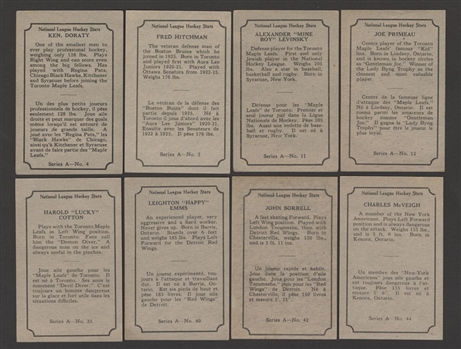 National League Hockey Stars
KEN. DORATY
One of the smallest men to
ever play professional hockey,
weighing only 128 lbs. Plays
Right Wing and can score even
among the big fellows. Has
played with Regina Pats,
Chicago Black Hawks, Kitchener
and Syracuse before joining the
Toronto Maple Leafs.
Un des plus petits joueurs
professionnels de hockey, il pèse
seulement 128 lbs. Joue aile
droite et peut marquer des goals
même lorsqu'il est entouré de
joueurs de grande taille. A
joué avec les "Regina Pats," les
"Black Hawks" de Chicago,
ainsi qu'à Kitchener et Syracuse
avant de faire partie des "Maple
Leafs."
Series A—No. 4
National League Hockey Stars
FRED HITCHMAN
The veteran defense man of
the Boston Bruins which he
joined in 1925. Born in Toronto
and played first with Aura Lee
Juniors 1920-21. Played with
Ottawa Senators from 1922-25.
Weighs 178 lbs.
Le vétéran de la défense des
"Boston Bruins" dont il fait
partie depuis 1925. Né à
Toronto il joua d'abord avec les
"Aura Lee Juniors" 1920-21.
Ensuite avec les Senateurs de
1922 à 1925. Il pèse 178 lbs.
Series A—No.
National League Hockey Stars
ALEXANDER "MINE
BOY" LEVINSKY
Defense player for the Toronto
Maple Leafs. First and only
Jewish player in the National
Hockey League. Weighs 205
lbs. Also a star in baseball,
basketball and rugby. Born in
Syracuse, New York.
Défense pour les "Maple
Leafs" de Toronto. Premier et
seul joueur juif dans la Ligue
Nationale de Hockey. Pèse 205
lbs. Aussi une vedette de base-
ball et rugby. Il est né à
Syracuse, New York.
Series A—No. 11
National League Hockey Stars
JOE PRIMEAU
Centre player of the Toronto
Maple Leafs' famous "Kid"
line. Born in Lindsay, Ontario,
and is known in hockey circles
as "Gentleman Joe." Winner of
the Lady Byng Trophy for
cleanest and most valuable
player.
Centre de la fameuse ligne
d'attaque des "Maple Leafs."
Né à Lindsay, Ontario. Il est
connu parmi les amateurs
de hockey comme "Gentleman
Joe." Il gagna le "Lady Byng
Trophy" pour être le joueur le
plus loyal.
Series A—No. 13
National League Hockey Stars
HAROLD "LUCKY"
COTTON
Plays with the Toronto Maple
Leafs at Left Wing position.
Born in Toronto. Fans call
him the "Demon Diver." A
dangerous man on the ice and
always useful in the pinches.
Joue aile gauche pour les
"Maple Leafs" de Toronto. Il
est né à Toronto. Ses amis le
nomment "Devil Diver." C'est
toujours un homme dangereux
sur la glace et fort utile dans les
situations difficiles.
Series A—No. 35
National League Hockey Stars
LEIGHTON "HAPPY"
EMMS
An experienced player, very
aggressive and a hard worker.
Never gives up. Born in Barrie,
Ontario. Scores about 8 feet
and weighs 185 lbs. Plays Left
Forward for the Detroit Red
Wings.
Un joueur expérimenté, très
toujours à l'attaque et travaillant
dur. Il est né à Barrie, Ont-
ario. Est six pieds de haut et
pèse 185 livres. Il joue aile
gauche pour les "Red Wings" de
Detroit.
Series A—No. 40
National League Hockey Stars
JOHN SORRELL
A fast skating Forward. Plays
Left Wing position. Played with
London Tecumsehs, then with
Detroit Red Wings. Born in
Chesterville, weighs 160 lbs.,
and is 5 ft. 11 ins.
Joueur rapide et habile.
Joue dans la position d'aile
gauche. Joua pour les "London
Tecumsehs," puis pour les "Red
Wings" de Detroit. Né à
Chesterville, il pèse 160 livres
et mesure 5' 11".
Series A—No. 42
National League Hockey Stars
CHARLES McVEIGH
A member of the New York
Americans. Plays Left Forward
position and is always dangerous
on the attack. Weighs 155 lbs.
and is 5 ft. 6 ins. Born in
Kenora, Ontario.
Un membre des "New-York
Americans" joue aile gauche et
est toujours dangereux à l'at-
taque. Pèse 155 livres et
mesure 5' 6". Il est né à
Kenora, Ontario.
Series A—No. 44